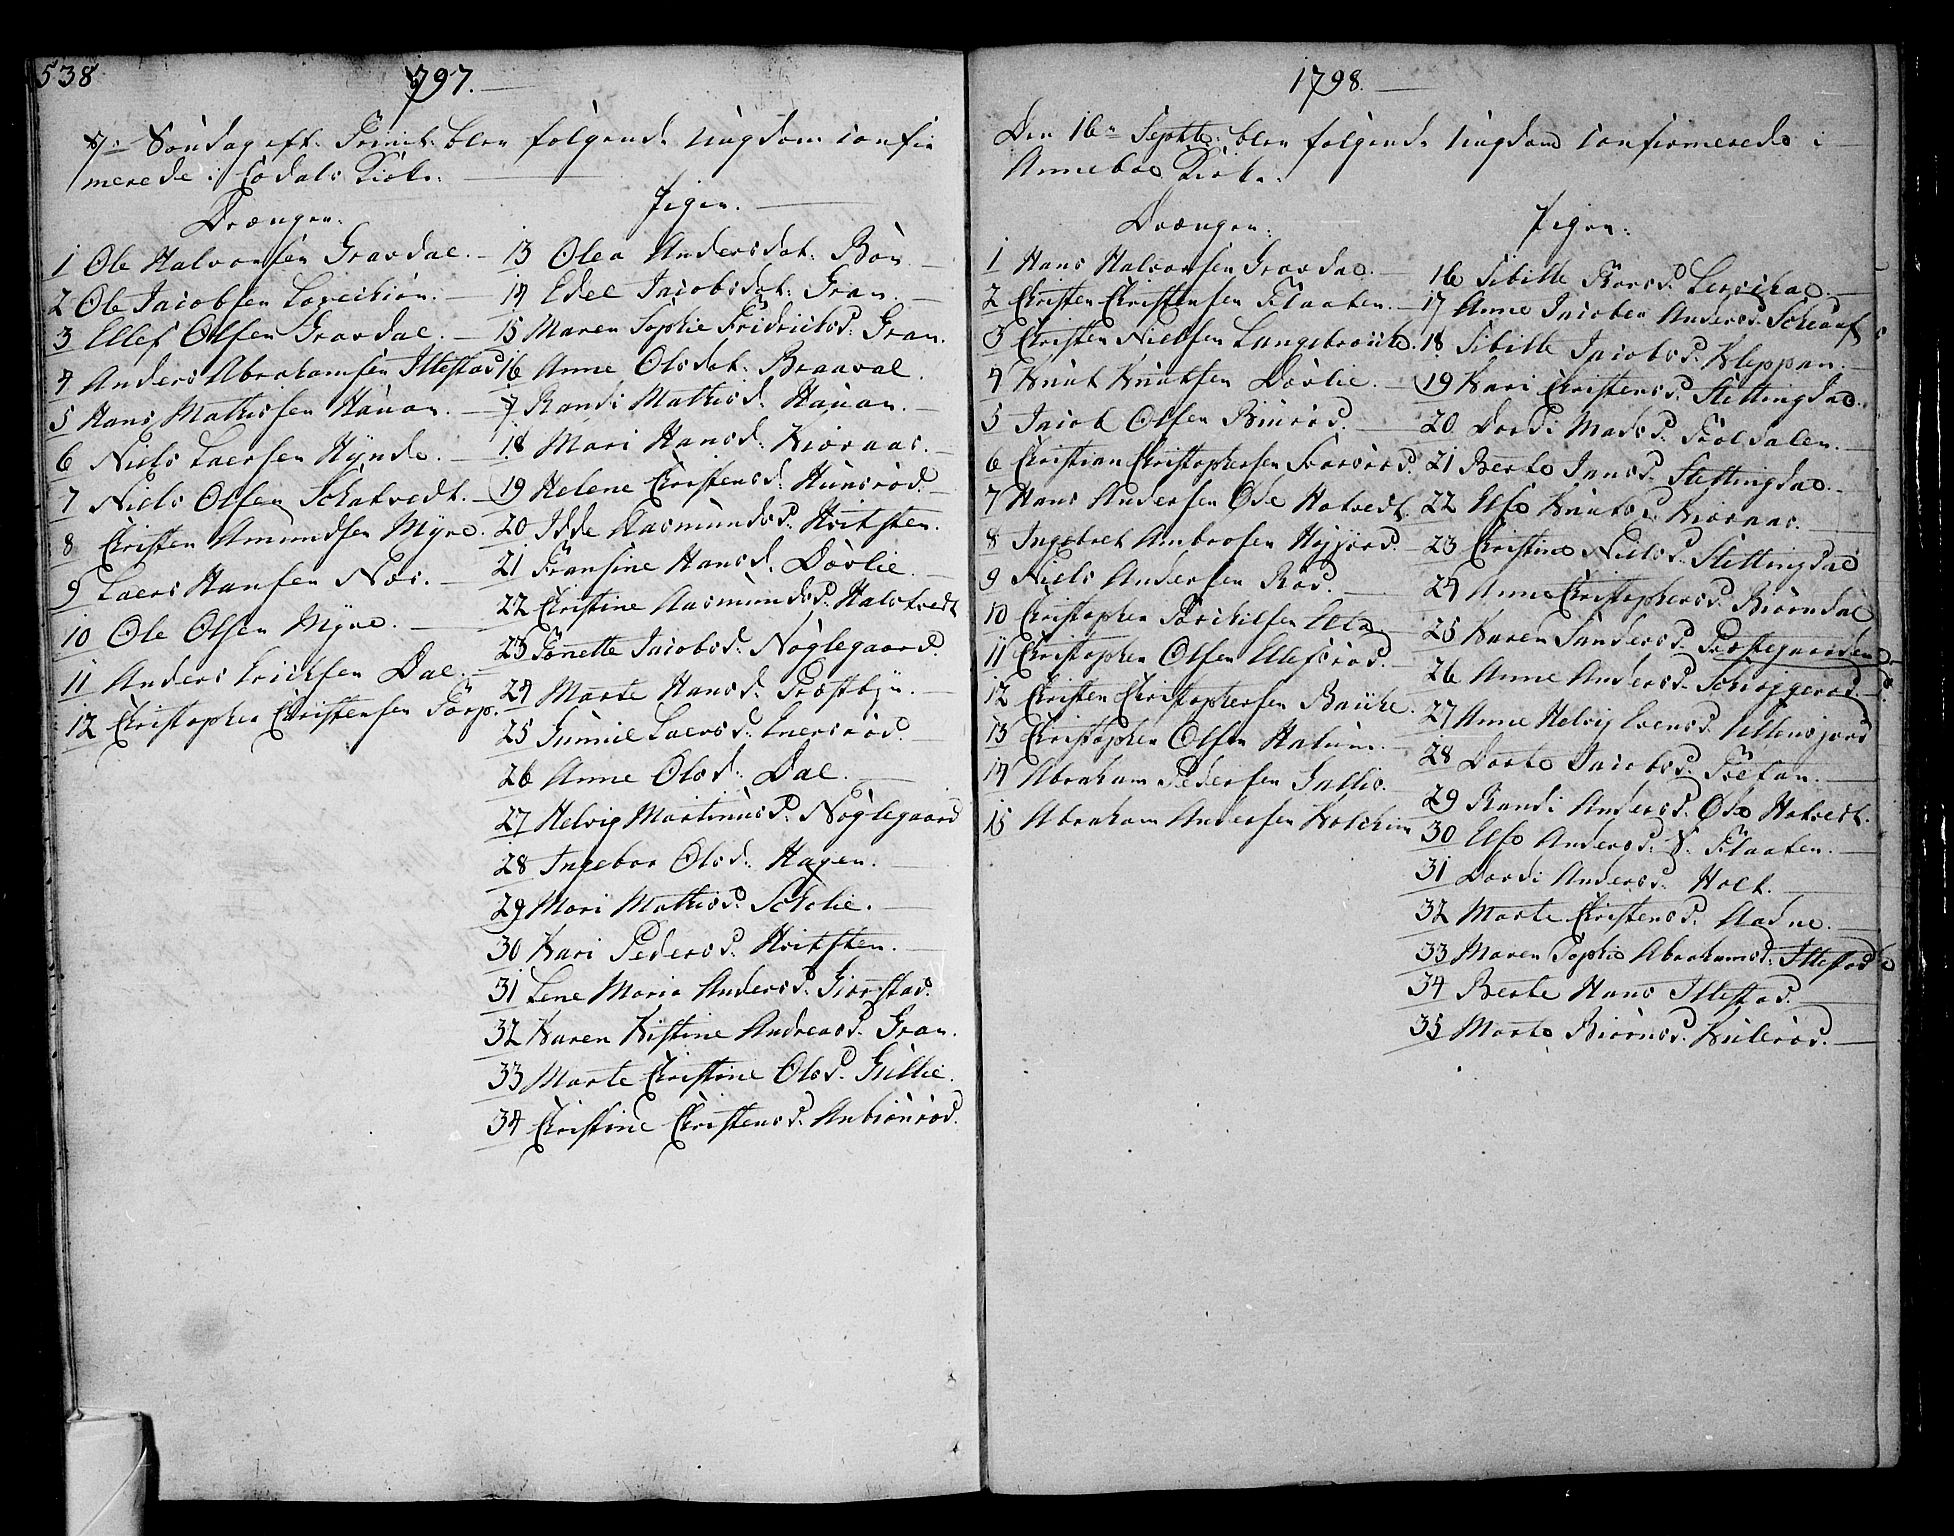 538
1797.
7de Søndag eft. Trinit. blev følgende Ungdom confir
merede i Kodals Kirke.
Drænger.
1 Ole Halvorsen Gravdal.
2 Ole Jacobsen
3 Ellef Olsen Gravdal.
4 Anders Abrahamsen Illestad
5 Hans Mathisen Hauan.
6 Niels Laersen Hynde.
7 Niels Olsen Schatvedt.
8 Christen Amundsen Myre.
9 Laers Hansen Næs.
10 Ole Olsen Myre.
11 Anders Ericksen Dal.
12 Christopher Christensen Torp.
Piger.
13 Olea Andersdat. Bøn
14 Edel Jacobsdat. Gran.
15 Maren Sophie Fridrichsd. Gran.
16 Anne Olsdat. Braaval.
17 Randi Mathisd. Hauan.
18 Mari Hansd. Kioraas.
19 Helene Christensd. Hunsrød.
20 Idde Rasmundsd. Hvitsten.
21 Fransine Hansd. Døvlie.
22 Christine Aasmundsd. Halstvedt
23 Tonette Jacobsd. Nøglegaard.
24 Marte Hansd. Præstbyn.
25 Gunnil Laersd. Enersrød.
26 Anne Olsd. Dal.
27 Helvig Martinusd. Nøglegaard
28 Ingebor Olsd. Hagen.
29 Mari Mathisd. Scholie.
30 Kari Pedersd. Hvitsten.
31 Lene Maria Andersd. Giørstad.
32 Karen Kistine Andreasd. Gran.
33 Marte Christine Olsd. Gullie.
34 Christine Christensd. Anbiønrød.
1798.
Den 16de Septbr. blev følgende Ungdom confirmerede i
Anneboe Kirke.
Drænger.
1 Hans Halvorsen Gravdal.
2 Christen Christensen Flaaten.
3 Christen Nielsen Langebrække.
4 Knut Knutsen Døvlie.
5 Jacob Olsen Buerød.
6 Christian Christophersen
7 Hans Andersen Øde Hotvedt
8 Ingebret Ambrosen Høyjord.
9 Niels Andersen Rød.
10 Christopher Torchilsen
11 Christopher Olsen Ellefsrød.
12 Christen Christophersen Bauke.
13 Christopher Olsen Halum.
14 Abraham Pedersen Gullie.
15 Abraham Andersen Kolchin
Piger.
16 Sibille Torsd. Lerschal.
17 Anne Jacobea Andersd. Schiauf
18 Sibille Jacobsd. Kleppan.
19 Kari Christensd. Stettingdal.
20 Dordi Madsd. Troldalen.
21 Berte Jansd. Stettingdal.
22 Else Knutsd. Kioraas.
23 Christine Nielsd. Stettingdal
24 Anne Christophersd. Biørndal
25 Karen Sandersd. Præstegaarden
26 Anne Andersd. Schoggerød.
27 Anne Helvig Evensd.
28 Dorte Jacobsd. Trætan.
29 Randi Andersd. Øde Hotvedt.
30 Else Andersd. N. Flaaten.
31 Dordi Andersd. Holt.
32 Marte Christensd. Aadne.
33 Maren Sophie Abrahamsd. Illestad
34 Berte Hans Illestad.
35 Marte Biørnsd. Kulerød.